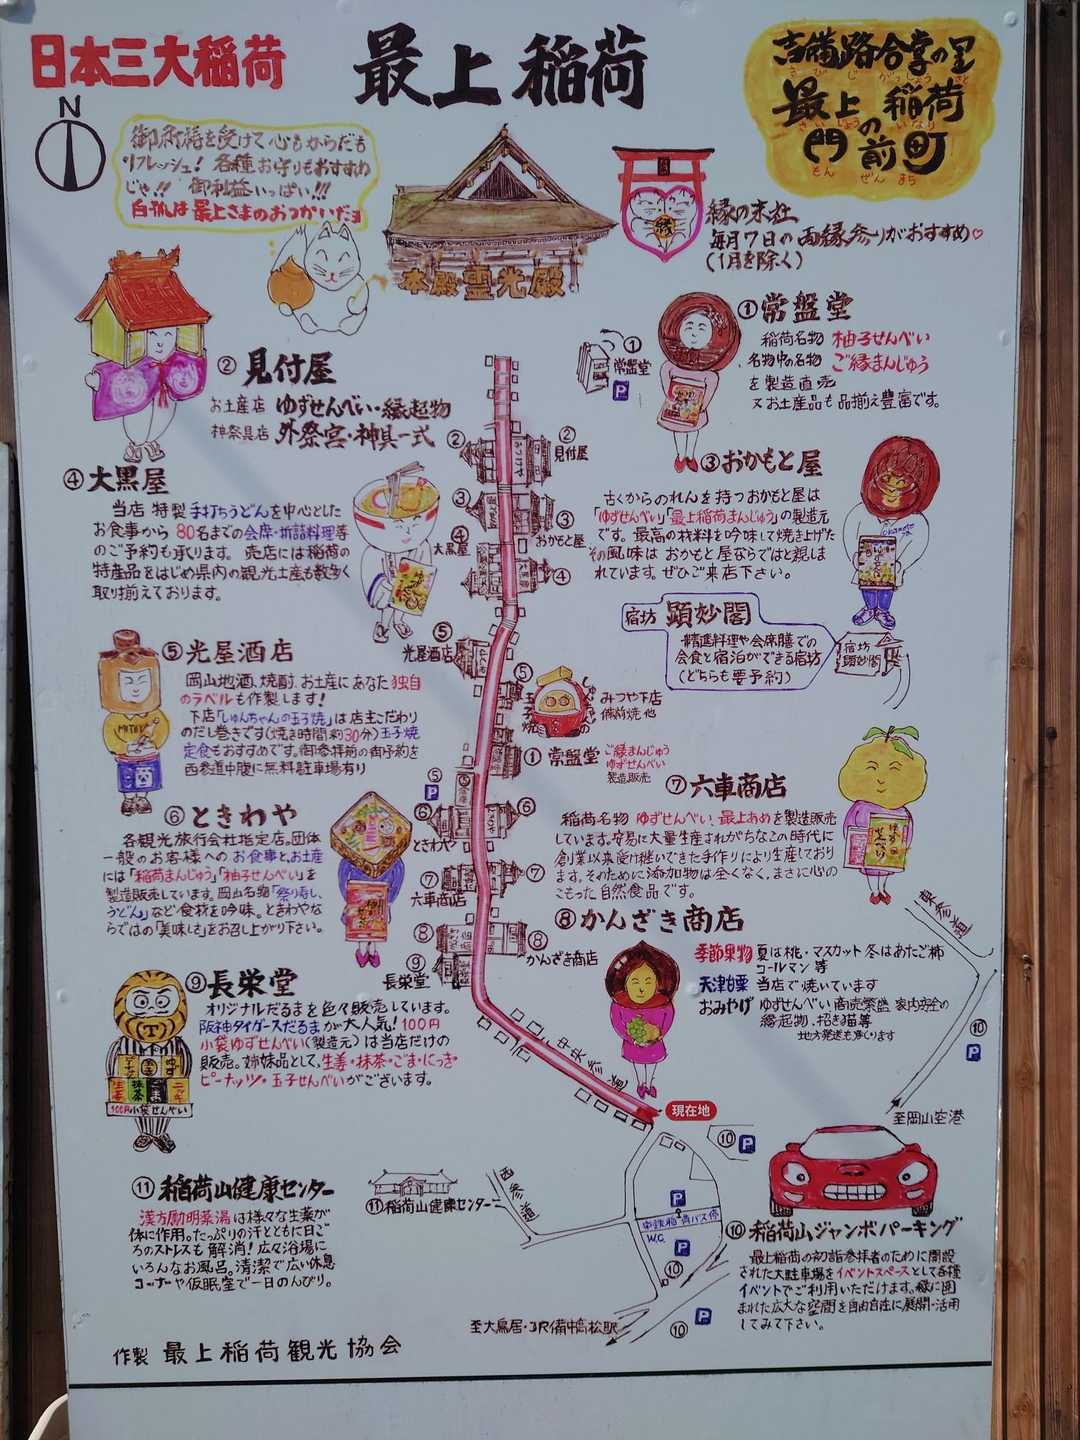 日本三大稲荷
最上稲荷
吉備路合掌の里
きびじがっしょうさと
最上稲荷
さいじょういなり
の
門前町
もんぜんまち
N
御祈祷を受けて心もからだも
リフレッシュ！各種お守りもおすすめ
じゃ!!御利益いっぱい!!!
白狐は最上さまのおつかいだョ
本殿霊光殿
縁
縁の末社
毎月7日の両縁参りがおすすめ♡
(1月を除く)
①常盤堂
稲荷名物 柚子せんべい
名物中の名物 ご縁まんじゅう
を製造直売
又お土産品も品揃え豊富です。
①
常盤堂
P
②見付屋
お土産店 ゆずせんべい・縁起物
神祭具店 外祭宮・神具一式
②
②
見付屋
③
③
おかもと屋
④
大黒屋
④
③おかもと屋
古くからのれんを持つおかもと屋は
「ゆずせんべい」「最上稲荷まんじゅう」の製造元
です。最高の材料を吟味して焼き上げた
その風味はおかもと屋ならではと親しま
れています。ぜひご来店下さい。
④大黒屋
当店特製手打ちうどんを中心とした
お食事から80名までの会席・折詰料理等
のご予約も承ります。売店には稲荷の
特産品をはじめ県内の観光土産も数多く
取り揃えております。
宿坊 顕妙閣
精進料理や会席膳での
会食と宿泊ができる宿坊
(どちらも要予約)
宿坊
顕妙閣
⑤光屋酒店
岡山地酒、焼酎、お土産にあなた独自
のラベルも作製します！
下店「しゅんちゃんの玉子焼」は店主こだわり
のだし巻きです(焼き時間約30分)玉子焼
定食もおすすめです。御参拝前の御予約を
西参道中腹に無料駐車場有り
⑤
光屋酒店
⑤
玉子焼
みつや下店
備前焼他
① 常盤堂
ご縁まんじゅう
ゆずせんべい
製造販売
⑤
P
⑥ときわや
各観光旅行会社指定店。団体
一般のお客様へのお食事とお土産
には「稲荷まんじゅう」「柚子せんべい」を
製造販売しています。岡山名物「祭り寿し、
うどん」など食材を吟味。ときわやな
らではの「美味しさ」をお召し上がり下さい。
⑥
⑥
ときわや
⑦
⑦
六車商店
⑧
⑧
かんざき商店
⑨
長栄堂
⑦六車商店
稲荷名物ゆずせんべい、最上あめを製造販売
しています。容易に大量生産されがちなこの時代に
創業以来受け継いできた手作りにより生産しており
ます。そのために添加物は全くなく、まさに心の
こもった自然食品です。
⑧かんざき商店
季節果物 夏は桃・マスカット 冬はあたご柿
コールマン等
天津甘栗 当店で焼いています
おみやげ ゆずせんべい、商売繁盛 家内安全の
縁起物、招き猫等
地方発送も承ります
奥参道
⑩
P
至岡山空港
⑨長栄堂
オリジナルだるまを色々販売しています。
阪神タイガースだるまが大人気！100円
小袋ゆずせんべい(製造元)は当店だけの
販売。姉妹品として、生姜・抹茶・ごま・にっき・
ピーナッツ・玉子せんべいがございます。
生姜
抹茶
ごま
ニッキ
100円小袋せんべい
中央参道
現在地
⑩ P
⑪稲荷山健康センター
漢方励明薬湯は様々な生薬が
体に作用。たっぷりの汗とともに日ご
ろのストレスも解消！広々浴場に
いろんなお風呂。清潔で広い休息
コーナーや仮眠室で一日のんびり。
⑪稲荷山健康センター
西参道
P
中鉄稲荷バス停
W.C.
P
⑩
P
⑩
至大鳥居・JR備中高松駅
⑩稲荷山ジャンボパーキング
最上稲荷の初詣参拝者のために開設
された大駐車場をイベントスペースとして各種
イベントでご利用いただけます。緑に囲
まれた広大な空間を自由自在に展開・活用
してみて下さい。
作製 最上稲荷観光協会